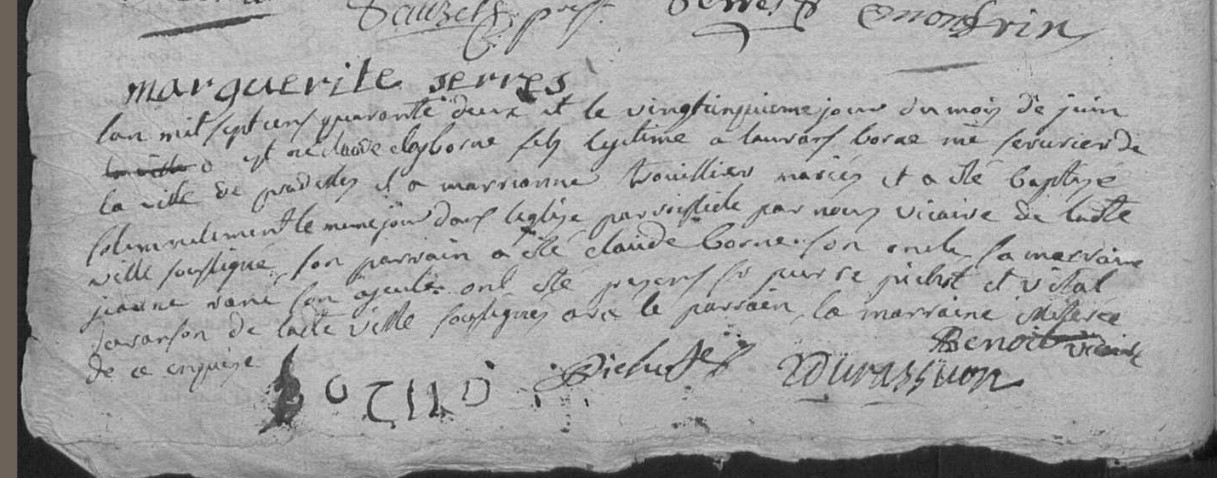 Dauzets pretre Serres Monfrin
marguerite serres
lan mil sept cens quarante deux et le vingtcinquieme jour du mois de juin
est né claude borne fils legitime a laurans borne me serurier de
la ville de pradelles et a marrianne trouillier mariés et a été baptisé
solemnelement le meme jour dans leglise parroissielle par nous vicaire de ladte
ville soussigné son parrain a été claude borne son oncle sa marraine
jeanne son ayeule ont été presens sr pierre pichot et vital
de ladte ville soussignés avec le parrain la marraine illiterée
de ce enquise
Benoit vicaire